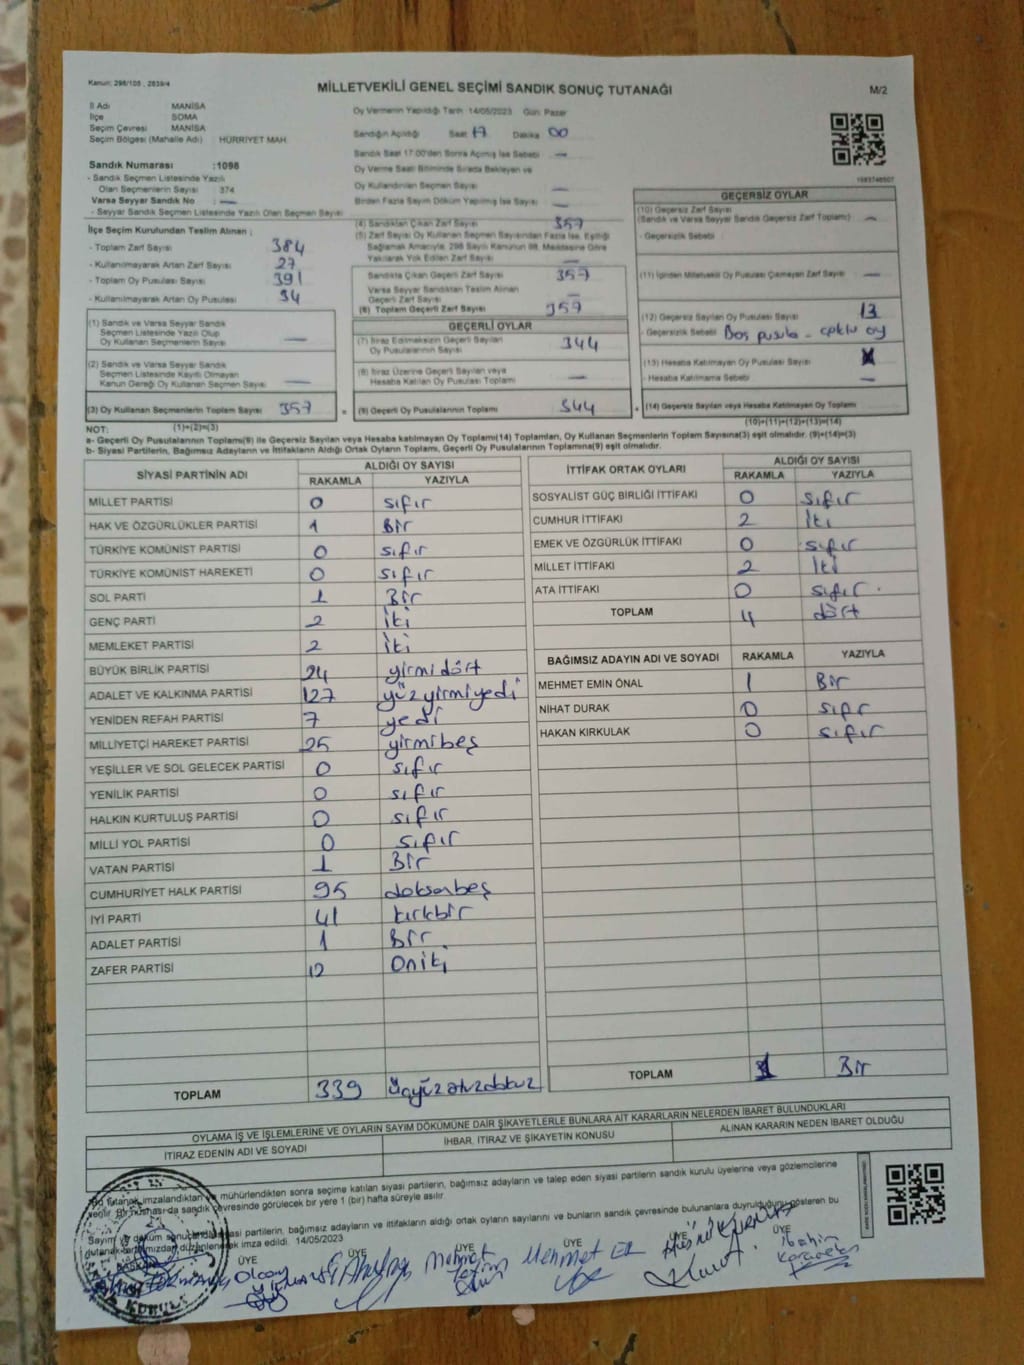 Kanun: 298/105 , 2839/4
MİLLETVEKİLİ GENEL SEÇİMİ SANDIK SONUÇ TUTANAĞI
M/2
İl Adı MANİSA
İlçe SOMA
Seçim Çevresi MANİSA
Seçim Bölgesi (Mahalle Adı) HÜRRİYET MAH
Sandık Numarası :1098
- Sandık Seçmen Listesinde Yazılı
Olan Seçmenlerin Sayısı 374
Varsa Seyyar Sandık No —
- Seyyar Sandık Seçmen Listesinde Yazılı Olan Seçmen Sayısı
İlçe Seçim Kurulundan Teslim Alınan :
- Toplam Zarf Sayısı 384
- Kullanılmayarak Artan Zarf Sayısı 27
- Toplam Oy Pusulası Sayısı 391
- Kullanılmayarak Artan Oy Pusulası 34
(1) Sandık ve Varsa Seyyar Sandık
Seçmen Listesinde Yazılı Olup
Oy Kullanan Seçmenlerin Sayısı —
(2) Sandık ve Varsa Seyyar Sandık
Seçmen Listesinde Kayıtlı Olmayan
Kanun Gereği Oy Kullanan Seçmen Sayısı —
(3) Oy Kullanan Seçmenlerin Toplam Sayısı 357
(1)+(2)=(3)
Oy Vermenin Yapıldığı Tarih 14/05/2023 Gün Pazar
Sandığın Açıldığı Saat 17 Dakika 00
Sandık Saat 17.00'den Sonra Açılmış İse Sebebi —
Oy Verme Saati Bitiminde Sırada Bekleyen ve
Oy Kullandırılan Seçmen Sayısı —
Birden Fazla Sayım Döküm Yapılmış İse Sayısı —
(4) Sandıktan Çıkan Zarf Sayısı 357
(5) Zarf Sayısı Oy Kullanan Seçmen Sayısından Fazla İse, Eşitliği
Sağlamak Amacıyla, 298 Sayılı Kanunun 98. Maddesine Göre
Yakılarak Yok Edilen Zarf Sayısı —
Sandıkta Çıkan Geçerli Zarf Sayısı 357
Varsa Seyyar Sandıktan Teslim Alınan
Geçerli Zarf Sayısı —
(6) Toplam Geçerli Zarf Sayısı 357
GEÇERLİ OYLAR
(7) İtiraz Edilmeksizin Geçerli Sayılan
Oy Pusulalarının Sayısı 344
(8) İtiraz Üzerine Geçerli Sayılan veya
Hesaba Katılan Oy Pusulası Toplamı —
(9) Geçerli Oy Pusulalarının Toplamı 344
GEÇERSİZ OYLAR
(10) Geçersiz Zarf Sayısı
(Sandık ve Varsa Seyyar Sandık Geçersiz Zarf Toplamı) —
- Geçersizlik Sebebi
(11) İçinden Milletvekili Oy Pusulası Çıkmayan Zarf Sayısı —
(12) Geçersiz Sayılan Oy Pusulası Sayısı 13
- Geçersizlik Sebebi Boş pusula - çoklu oy
(13) Hesaba Katılmayan Oy Pusulası Sayısı
- Hesaba Katılmama Sebebi —
(14) Geçersiz Sayılan veya Hesaba Katılmayan Oy Pusulası Toplamı
(10)+(11)+(12)+(13)=(14)
NOT:
a- Geçerli Oy Pusulalarının Toplamı(9) ile Geçersiz Sayılan veya Hesaba katılmayan Oy Toplamı(14) Toplamları, Oy Kullanan Seçmenlerin Toplam Sayısına(3) eşit olmalıdır. (9)+(14)=(3)
b- Siyasi Partilerin, Bağımsız Adayların ve İttifakların Aldığı Ortak Oyların Toplamı, Geçerli Oy Pusulalarının Toplamına(9) eşit olmalıdır.
SİYASİ PARTİNİN ADI ALDIĞI OY SAYISI
RAKAMLA YAZIYLA
MİLLET PARTİSİ 0 sıfır
HAK VE ÖZGÜRLÜKLER PARTİSİ 1 Bir
TÜRKİYE KOMÜNİST PARTİSİ 0 sıfır
TÜRKİYE KOMÜNİST HAREKETİ 0 sıfır
SOL PARTİ 1 Bir
GENÇ PARTİ 2 iki
MEMLEKET PARTİSİ 2 iki
BÜYÜK BİRLİK PARTİSİ 24 yirmi dört
ADALET VE KALKINMA PARTİSİ 127 yüz yirmi yedi
YENİDEN REFAH PARTİSİ 7 yedi
MİLLİYETÇİ HAREKET PARTİSİ 25 yirmi beş
YEŞİLLER VE SOL GELECEK PARTİSİ 0 sıfır
YENİLİK PARTİSİ 0 sıfır
HALKIN KURTULUŞ PARTİSİ 0 sıfır
MİLLİ YOL PARTİSİ 0 sıfır
VATAN PARTİSİ 1 Bir
CUMHURİYET HALK PARTİSİ 95 doksanbeş
İYİ PARTİ 41 kırkbir
ADALET PARTİSİ 1 Bir
ZAFER PARTİSİ 12 Oniki
TOPLAM 339 üçyüzotuzdokuz
İTTİFAK ORTAK OYLARI ALDIĞI OY SAYISI
RAKAMLA YAZIYLA
SOSYALİST GÜÇ BİRLİĞİ İTTİFAKI 0 sıfır
CUMHUR İTTİFAKI 2 iki
EMEK VE ÖZGÜRLÜK İTTİFAKI 0 sıfır
MİLLET İTTİFAKI 2 iki
ATA İTTİFAKI 0 sıfır.
TOPLAM 4 dört
BAĞIMSIZ ADAYIN ADI VE SOYADI RAKAMLA YAZIYLA
MEHMET EMİN ÖNAL 1 Bir
NİHAT DURAK 0 sıfır
HAKAN KIRKULAK 0 sıfır
TOPLAM 1 Bir
OYLAMA İŞ VE İŞLEMLERİNE VE OYLARIN SAYIM DÖKÜMÜNE DAİR ŞİKAYETLERLE BUNLARA AİT KARARLARIN NELERDEN İBARET BULUNDUKLARI
İTİRAZ EDENİN ADI VE SOYADI İHBAR, İTİRAZ VE ŞİKAYETİN KONUSU ALINAN KARARIN NEDEN İBARET OLDUĞU
tutanak imzalandıktan mühürlendikten sonra seçime katılan siyasi partilerin, bağımsız adayların ve talep eden siyasi partilerin sandık kurulu üyelerine veya gözlemcilerine
verilir. Bir nüshası da sandık çevresinde görülecek bir yere 1 (bir) hafta süreyle asılır.
Sayım ve döküm siyasi partilerin, bağımsız adayların ve ittifakların aldığı ortak oyların sayılarını ve bunların sandık çevresinde bulunanlara duyurulduğunu gösteren bu
tutanak tarafımızdan düzenlenerek imza edildi. 14/05/2023
BAŞKAN ÜYE ÜYE ÜYE ÜYE ÜYE
Olcay Mehmet Mehmet İbrahim